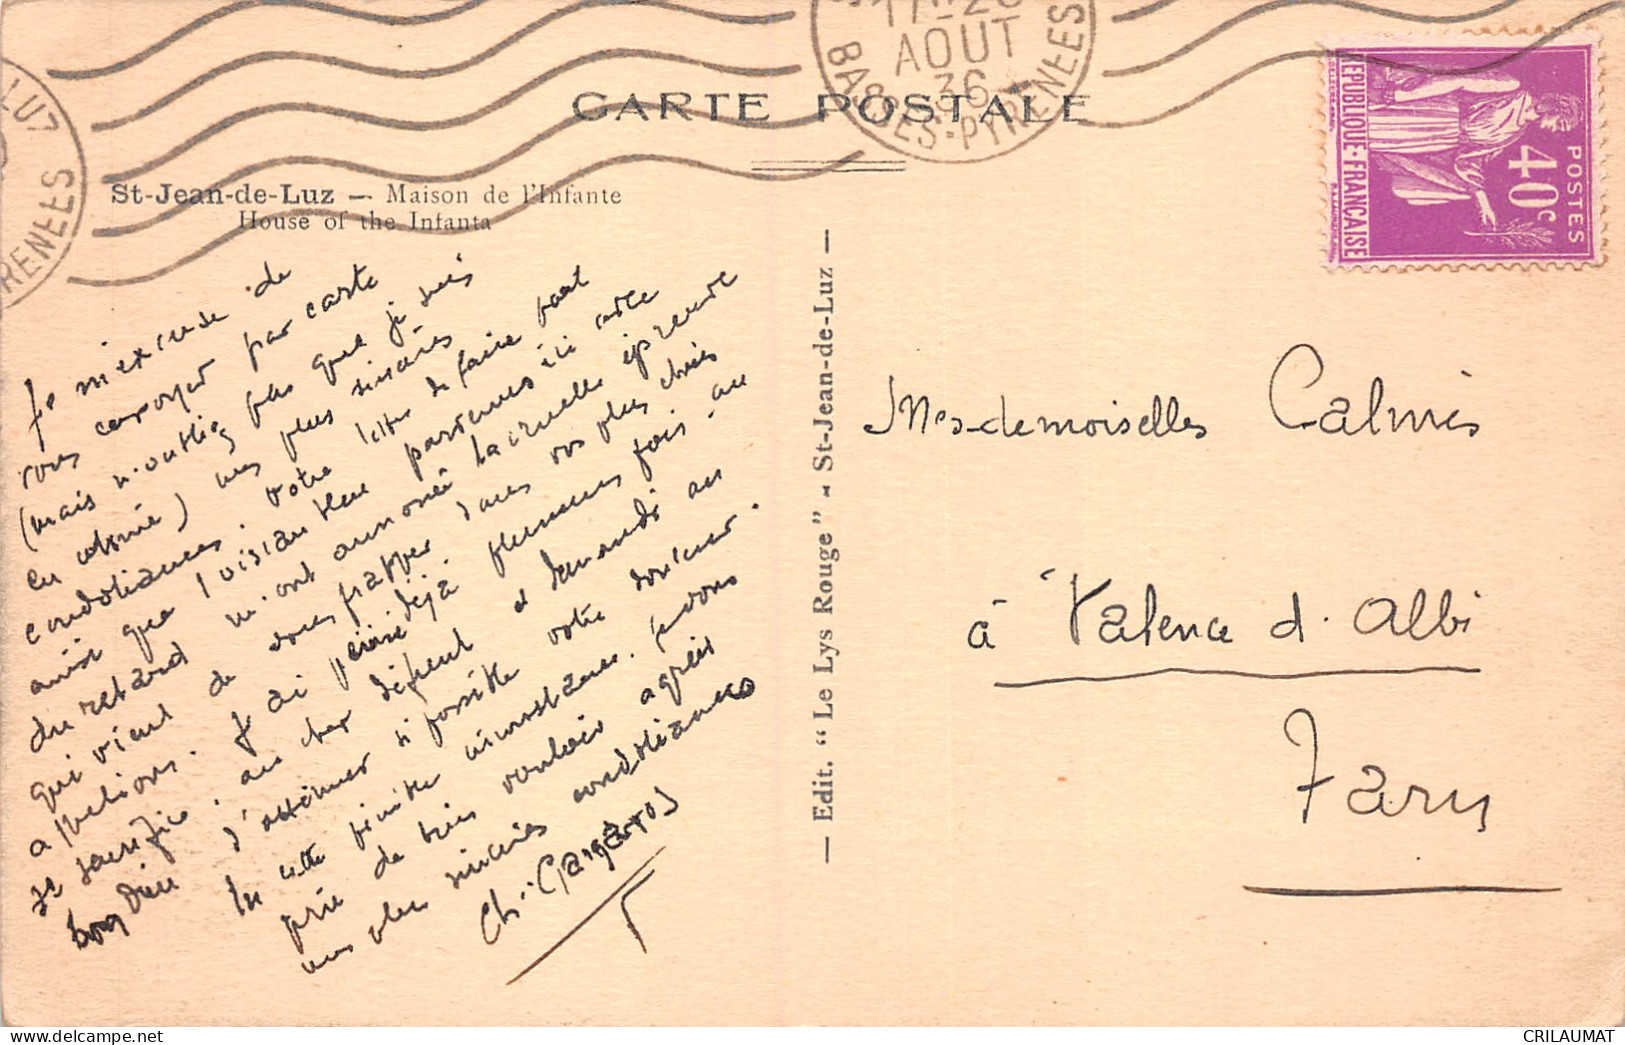 17 H 20
AOÛT
36
BASSES-PYRENEES
LUZ
PYRENEES
CARTE POSTALE
REPUBLIQUE·FRANÇAISE
POSTES
40c
St-Jean-de-Luz — Maison de l'Infante
House of the Infanta
Je m'excuse de
vous envoyer par carte
(mais n'oubliez pas que je suis
en colonie) mes plus sincères
condoléances. Votre lettre de faire part
ainsi que parvenus ici avec
du retard m'ont annoncé la cruelle épreuve
qui vient de vous frapper dans vos plus chères
affections. J'ai pensé déjà plusieurs fois au
St Sacrifice au cher défunt et demandé au
bon Dieu d'atténuer si possible votre douleur.
En cette pénible circonstance. Je vous
prie de bien vouloir agréer
mes plus sincères condoléances
Ch. Gargaros
— Edit. "Le Lys Rouge" - St-Jean-de-Luz —
Mesdemoiselles Calmès
à Valence d'Albi
Tarn
CRILAUMAT